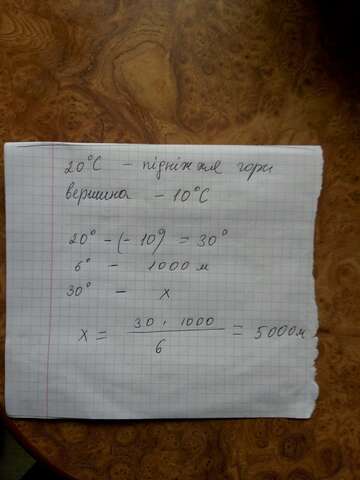 20°C – підніжжя гори
вершина – 10°C
20° – (– 10°) = 30°
6° – 1000 м
30° – x
x = 30 · 1000 / 6 = 5000м